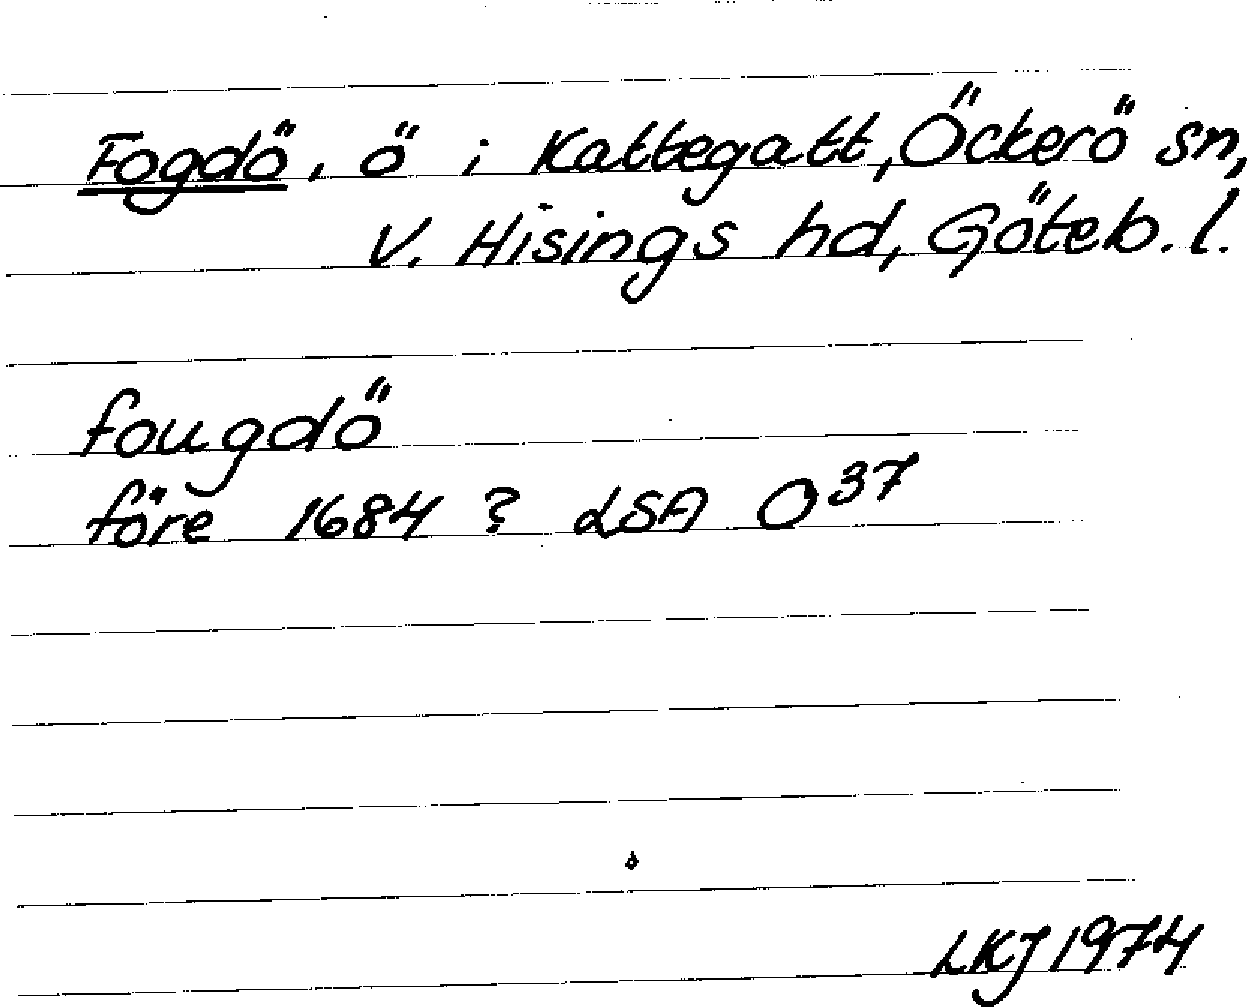 Fogdö, ö i Kattegatt, Öckerö sn,
V. Hisings hd, Göteb. l.
fougdö
före 1684 ? LSA O 37
LKJ 1974